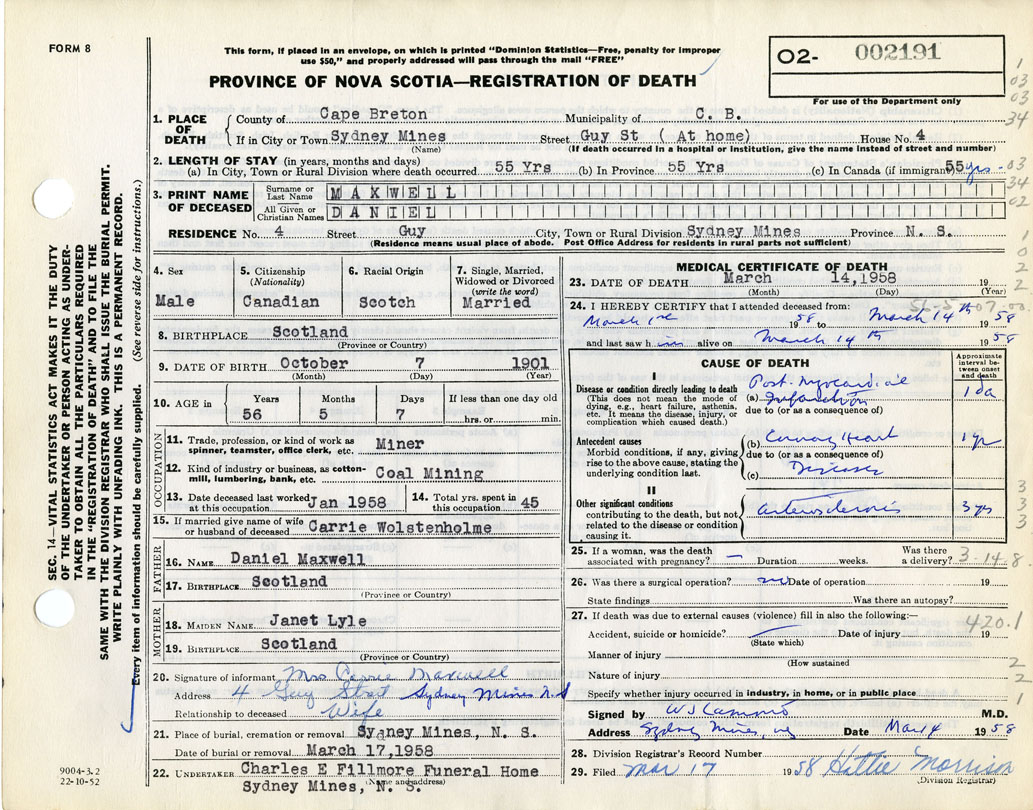 FORM 8
This form, if placed in an envelope, on which is printed "Dominion Statistics—Free, penalty for improper
use $50," and properly addressed will pass through the mail "FREE"
PROVINCE OF NOVA SCOTIA—REGISTRATION OF DEATH
O2- 002191
For use of the Department only
1. PLACE OF DEATH { County of Cape Breton Municipality of C. B.
If in City or Town Sydney Mines Street Guy St ( At home) House No. 4
(Name) (If death occurred in a hospital or institution, give the name instead of street and number)
2. LENGTH OF STAY (in years, months and days)
(a) In City, Town or Rural Division where death occurred 55 Yrs (b) In Province 55 Yrs (c) In Canada (if immigrant) 55 yrs
3. PRINT NAME OF DECEASED
Surname or Last Name MAXWELL
All Given or Christian Names DANIEL
RESIDENCE No. 4 Street Guy City, Town or Rural Division Sydney Mines Province N. S.
(Residence means usual place of abode. Post Office Address for residents in rural parts not sufficient)
4. Sex
Male
5. Citizenship
(Nationality)
Canadian
6. Racial Origin
Scotch
7. Single, Married,
Widowed or Divorced
(write the word)
Married
8. BIRTHPLACE Scotland
(Province or Country)
9. DATE OF BIRTH October 7 1901
(Month) (Day) (Year)
10. AGE in Years Months Days If less than one day old
56 5 7 hrs. or min.
OCCUPATION
11. Trade, profession, or kind of work as
spinner, teamster, office clerk, etc. Miner
12. Kind of industry or business, as cotton-
mill, lumbering, bank, etc. Coal Mining
13. Date deceased last worked
at this occupation Jan 1958
14. Total yrs. spent in
this occupation 45
15. If married give name of wife
or husband of deceased Carrie Wolstenholme
FATHER
16. NAME Daniel Maxwell
17. BIRTHPLACE Scotland
(Province or Country)
MOTHER
18. MAIDEN NAME Janet Lyle
19. BIRTHPLACE Scotland
(Province or Country)
20. Signature of informant Mrs Carrie Maxwell
Address 4 Guy Street Sydney Mines N.S
Relationship to deceased Wife
21. Place of burial, cremation or removal Sydney Mines, N. S.
Date of burial or removal March 17,1958
22. UNDERTAKER Charles E Fillmore Funeral Home
(Name and address)
Sydney Mines, N. S.
MEDICAL CERTIFICATE OF DEATH
23. DATE OF DEATH March 14,1958 19
(Month) (Day) (Year)
24. I HEREBY CERTIFY that I attended deceased from:
March 1st 1958 to March 14th 1958
and last saw h im alive on March 14th 1958
CAUSE OF DEATH
Approximate
interval be-
tween onset
and death
I
Disease or condition directly leading to death
(This does not mean the mode of
dying, e.g., heart failure, asthenia,
etc. It means the disease, injury, or
complication which caused death.)
(a) Post. Myocardial
Infarction
due to (or as a consequence of)
1 da
Antecedent causes
Morbid conditions, if any, giving
rise to the above cause, stating the
underlying condition last.
(b) Coronary Heart
due to (or as a consequence of)
(c) Disease
1 yr
II
Other significant conditions
contributing to the death, but not
related to the disease or condition
causing it.
arteriosclerosis
3 yrs
25. If a woman, was the death
associated with pregnancy? — Duration weeks. Was there
a delivery? 3-14-8
26. Was there a surgical operation? no Date of operation 19
State findings Was there an autopsy?
27. If death was due to external causes (violence) fill in also the following:—
420.1
Accident, suicide or homicide? Date of injury 19
(State which)
Manner of injury
(How sustained
Nature of injury
Specify whether injury occurred in industry, in home, or in public place
Signed by M.D.
Address Sydney Mines, Date Mar 14 1958
28. Division Registrar's Record Number
29. Filed Mar 17 1958 Hattie Morrison
(Division Registrar)
SEC. 14—VITAL STATISTICS ACT MAKES IT THE DUTY
OF THE UNDERTAKER OR PERSON ACTING AS UNDER-
TAKER TO OBTAIN ALL THE PARTICULARS REQUIRED
IN THE "REGISTRATION OF DEATH" AND TO FILE THE
SAME WITH THE DIVISION REGISTRAR WHO SHALL ISSUE THE BURIAL PERMIT.
WRITE PLAINLY WITH UNFADING INK. THIS IS A PERMANENT RECORD.
Every item of information should be carefully supplied. (See reverse side for instructions.)
9004-3.2
22-10-52
1
03
03
34
03
34
02
1
0
2
2
3
3
3
2
2
1